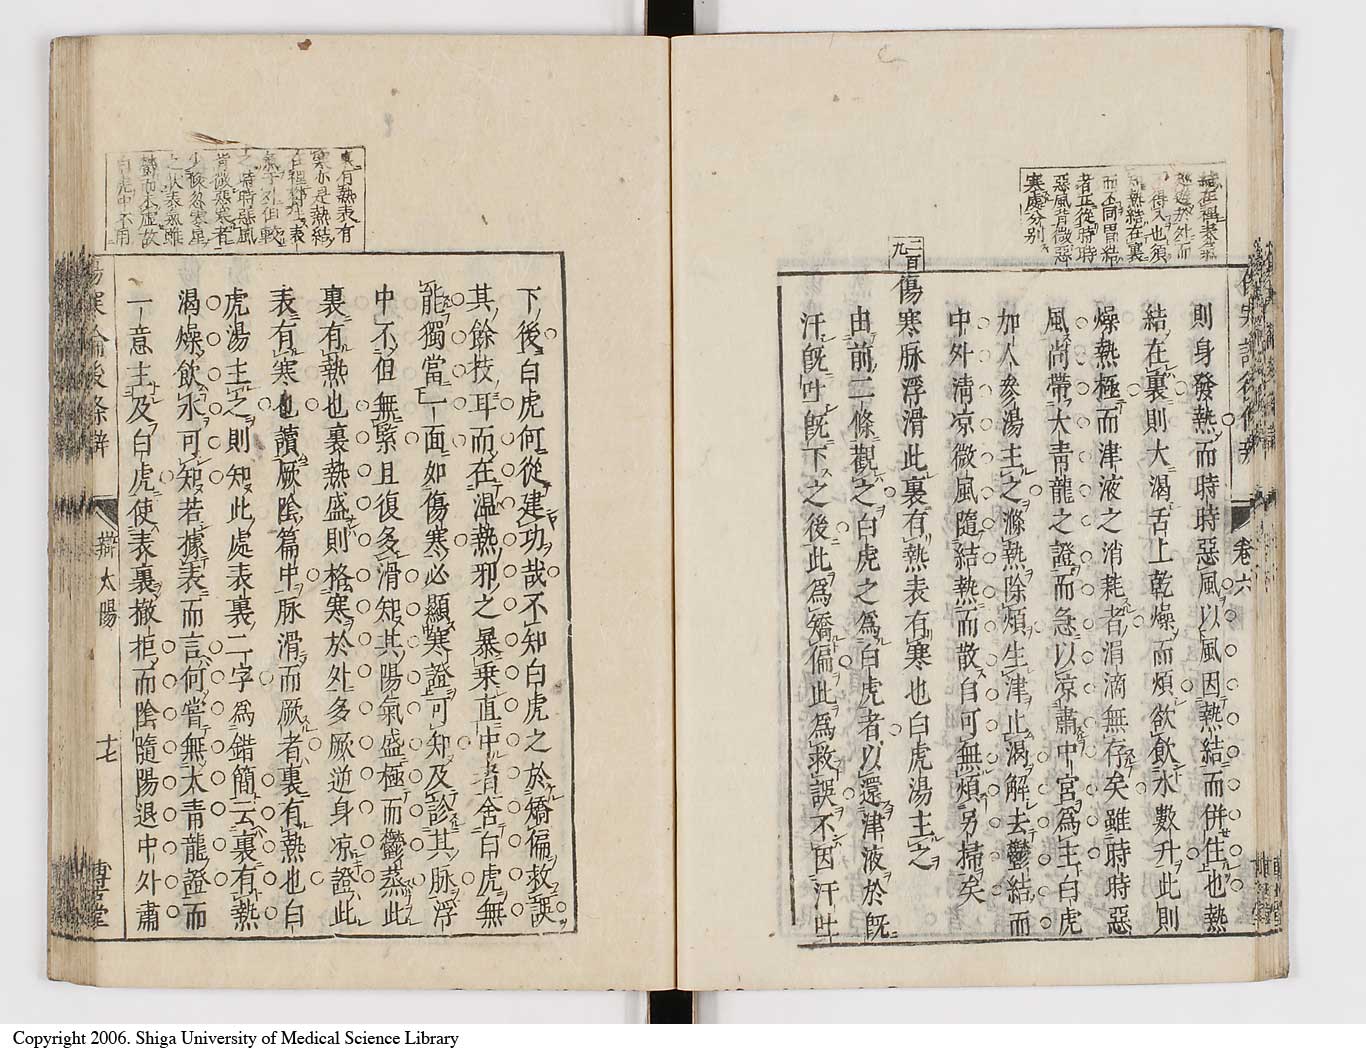 則身發熱而時時惡風以風因熱結而併住也熱
結在裏則大渴舌上乾燥而煩飲飲水數升此則
燥熱極而津液之消耗者涓滴無存矣雖時時惡
風尚帶大青龍之證而急以凉肅中宮為主白虎
加人參湯主之滌熱除煩生津止渴解去鬱結而
中外淸凉微風隨結熱而散自可無煩另掃矣
傷寒脉浮滑此裏有熱表有寒也白虎湯主之
二百九
由前二條觀之白虎之為白虎者以還津液於旣
汗旣吐旣下之後此為矯偏此為救誤不因汗吐
得入也須
熱結在裏
而不同胃結
者正從時時
惡風背微惡
寒處分別
卷六
下後白虎何從建功哉不知白虎之於矯偏救誤
其餘技耳而在温熱邪之暴乘直中者舍白虎無
能獨當一面如傷寒必顯寒證可知及診其脉浮
中不但無緊且復多滑知其陽氣盛極而鬱蒸此
裏有熱也裏熱盛則格寒於外多厥逆身凉證此
表有寒也讀厥陰篇中脉滑而厥者裏有熱也白
虎湯主之則知此處表裏二字為錯簡云裏有熱
渴燥飲水可知若據表而言何嘗無太青龍證而
一意主及白虎使表裏撤拒而陰隨陽退中外肅
裏有熱表有
寒亦是熱結
在裡鬱住表
氣于外但較
之時時惡風
背微惡寒者
少倐忽寒星
之狀表蒸雖
鬱而未虛故
白虎中不用
傷寒論後條辨
辯太陽
十七
博古堂
Copyright 2006. Shiga University of Medical Science Library